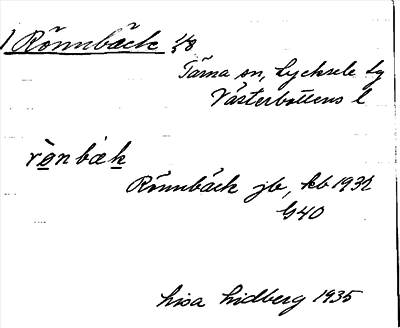 1 Rönnbäck 1/8
Tärna sn, Lycksele lg
Västerbottens l
rònbæk
Rönnbäck jb, kb 1932
G40
Lisa Lidberg 1935